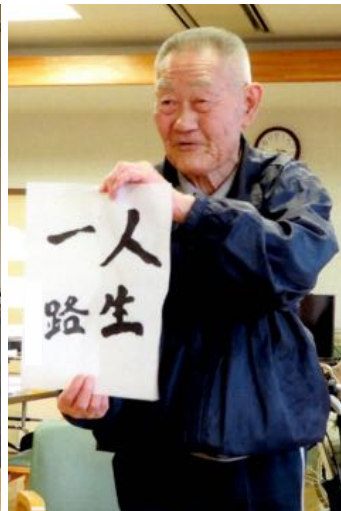 人生
一路